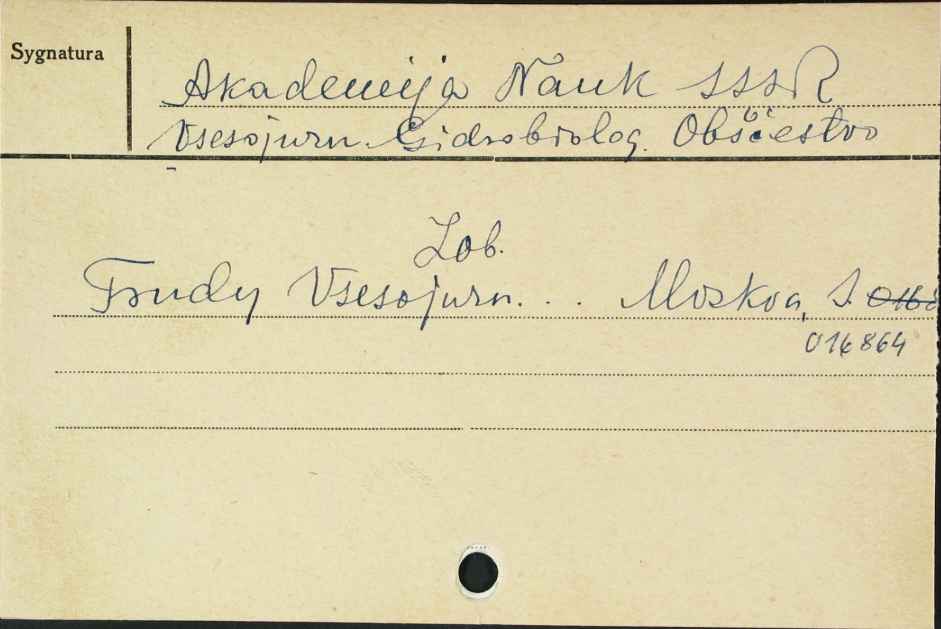 Sygnatura
Akademija Nauk SSSR
Vsesojuzn. Gidrobiolog. Obščestvo
Zob.
Trudy Vsesojuzn. . . Moskva, S.
016864